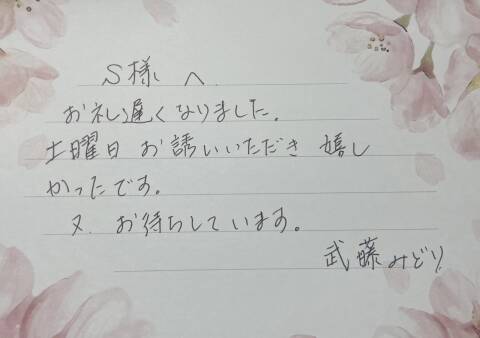 S様へ
お礼遅くなりました。
土曜日 お誘いいただき 嬉し
かったです。
又、お待ちしています。
武藤みどり